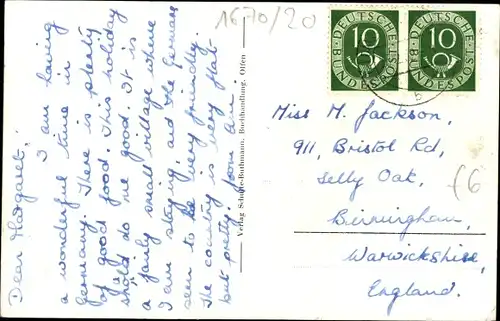 Dear Margaret,
I am having
a wonderful time in
Germany. There is plenty
of good food. This holiday
shold do me good. It is
a fairly small village where
I am staying, and the Germans
seem to be very friendly.
The country is very flat
but pretty. from Ann.
Verlag Schulte-Buthmann, Buchhandlung, Olfen
1670/20
DEUTSCHE
10
BUNDESPOST
DEUTSCHE
10
BUNDESPOST
Miss M. Jackson,
911, Bristol Rd,
Selly Oak,
Birmingham,
Warwickshire,
England.